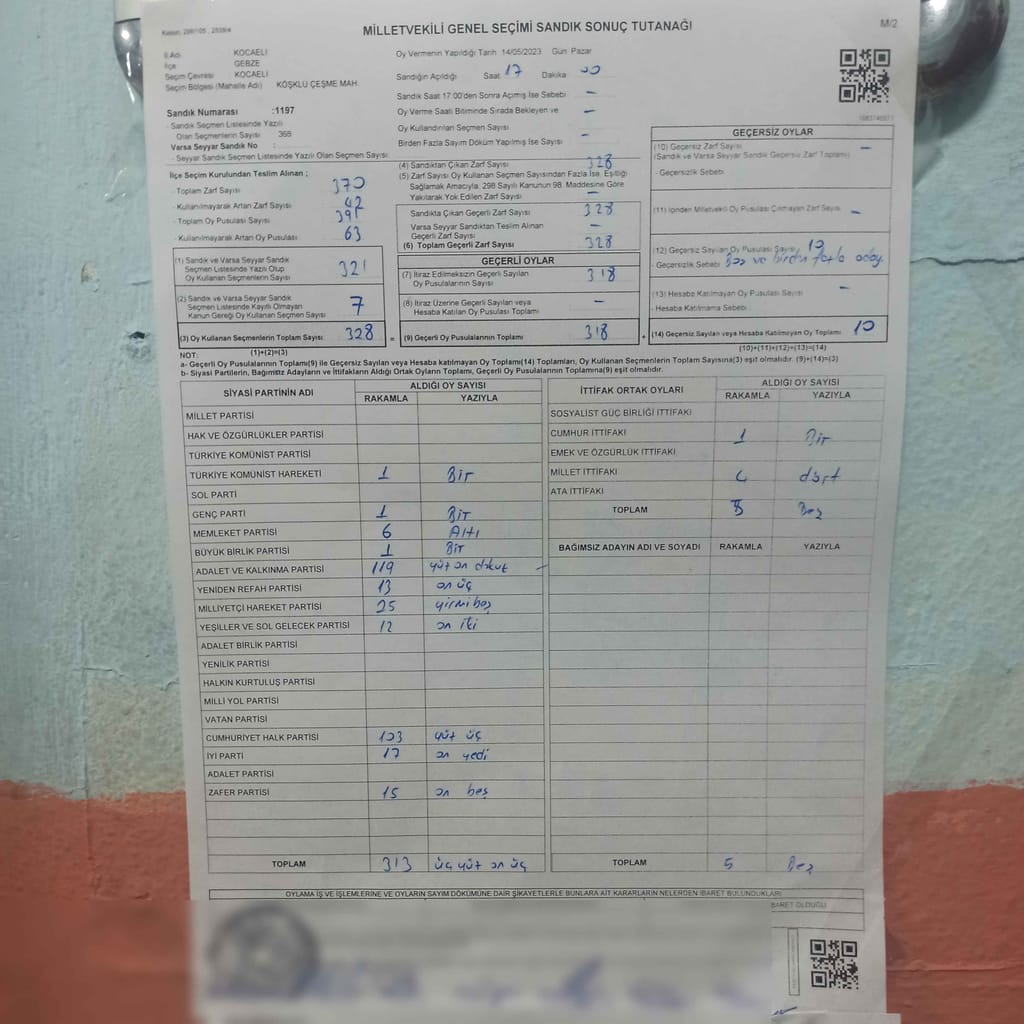 MİLLETVEKİLİ GENEL SEÇİMİ SANDIK SONUÇ TUTANAĞI
M/2
İl Adı KOCAELİ
İlçe GEBZE
Seçim Çevresi KOCAELİ
Seçim Bölgesi (Mahalle Adı) KÖŞKLÜ ÇEŞME MAH.
Sandık Numarası :1197
- Sandık Seçmen Listesinde Yazılı
Olan Seçmenlerin Sayısı 368
Varsa Seyyar Sandık No :
- Seyyar Sandık Seçmen Listesinde Yazılı Olan Seçmen Sayısı:
İlçe Seçim Kurulundan Teslim Alınan ;
- Toplam Zarf Sayısı 370
- Kullanılmayarak Artan Zarf Sayısı 42
- Toplam Oy Pusulası Sayısı 391
- Kullanılmayarak Artan Oy Pusulası 63
(1) Sandık ve Varsa Seyyar Sandık
Seçmen Listesinde Yazılı Olup
Oy Kullanan Seçmenlerin Sayısı 321
(2) Sandık ve Varsa Seyyar Sandık
Seçmen Listesinde Kayıtlı Olmayan
Kanun Gereği Oy Kullanan Seçmen Sayısı 7
(3) Oy Kullanan Seçmenlerin Toplam Sayısı 328 =
(1)+(2)=(3)
Oy Vermenin Yapıldığı Tarih 14/05/2023 Gün Pazar
Sandığın Açıldığı Saat 17 Dakika 00
Sandık Saat 17:00'den Sonra Açımış İse Sebebi –
Oy Verme Saati Bitiminde Sırada Bekleyen ve –
Oy Kullandırılan Seçmen Sayısı –
Birden Fazla Sayım Döküm Yapılmış İse Sayısı –
(4) Sandıktan Çıkan Zarf Sayısı 328
(5) Zarf Sayısı Oy Kullanan Seçmen Sayısından Fazla İse, Eşitliği
Sağlamak Amacıyla, 298 Sayılı Kanunun 98. Maddesine Göre
Yakılarak Yok Edilen Zarf Sayısı –
Sandıkta Çıkan Geçerli Zarf Sayısı 328
Varsa Seyyar Sandıktan Teslim Alınan
Geçerli Zarf Sayısı –
(6) Toplam Geçerli Zarf Sayısı 328
GEÇERLİ OYLAR
(7) İtiraz Edilmeksizin Geçerli Sayılan
Oy Pusulalarının Sayısı 318
(8) İtiraz Üzerine Geçerli Sayılan veya
Hesaba Katılan Oy Pusulası Toplamı –
(9) Geçerli Oy Pusulalarının Toplamı 318 +
GEÇERSİZ OYLAR
(10) Geçersiz Zarf Sayısı –
(Sandık ve Varsa Seyyar Sandık Geçersiz Zarf Toplamı)
- Geçersizlik Sebebi
(11) İçinden Milletvekili Oy Pusulası Çıkmayan Zarf Sayısı –
(12) Geçersiz Sayılan Oy Pusulası Sayısı 10
- Geçersizlik Sebebi Boş ve birden fazla aday
(13) Hesaba Katılmayan Oy Pusulası Sayısı –
- Hesaba Katılmama Sebebi
(14) Geçersiz Sayılan veya Hesaba Katılmayan Oy Toplamı 10
(10)+(11)+(12)+(13)=(14)
NOT:
a- Geçerli Oy Pusulalarının Toplamı(9) ile Geçersiz Sayılan veya Hesaba katılmayan Oy Toplamı(14) Toplamları, Oy Kullanan Seçmenlerin Toplam Sayısına(3) eşit olmalıdır. (9)+(14)=(3)
b- Siyasi Partilerin, Bağımsız Adayların ve İttifakların Aldığı Ortak Oyların Toplamı, Geçerli Oy Pusulalarının Toplamına(9) eşit olmalıdır.
SİYASİ PARTİNİN ADI ALDIĞI OY SAYISI
RAKAMLA YAZIYLA
MİLLET PARTİSİ
HAK VE ÖZGÜRLÜKLER PARTİSİ
TÜRKİYE KOMÜNİST PARTİSİ
TÜRKİYE KOMÜNİST HAREKETİ 1 Bir
SOL PARTİ
GENÇ PARTİ 1 Bir
MEMLEKET PARTİSİ 6 Altı
BÜYÜK BİRLİK PARTİSİ 1 Bir
ADALET VE KALKINMA PARTİSİ 119 yüz on dokuz
YENİDEN REFAH PARTİSİ 13 on üç
MİLLİYETÇİ HAREKET PARTİSİ 25 yirmibeş
YEŞİLLER VE SOL GELECEK PARTİSİ 12 on iki
ADALET BİRLİK PARTİSİ
YENİLİK PARTİSİ
HALKIN KURTULUŞ PARTİSİ
MİLLİ YOL PARTİSİ
VATAN PARTİSİ
CUMHURİYET HALK PARTİSİ 103 yüz üç
İYİ PARTİ 17 on yedi
ADALET PARTİSİ
ZAFER PARTİSİ 15 on beş
TOPLAM 313 üç yüz on üç
İTTİFAK ORTAK OYLARI ALDIĞI OY SAYISI
RAKAMLA YAZIYLA
SOSYALİST GÜÇ BİRLİĞİ İTTİFAKI
CUMHUR İTTİFAKI 1 Bir
EMEK VE ÖZGÜRLÜK İTTİFAKI
MİLLET İTTİFAKI 4 dört
ATA İTTİFAKI
TOPLAM 5 Beş
BAĞIMSIZ ADAYIN ADI VE SOYADI RAKAMLA YAZIYLA
TOPLAM 5 Beş
OYLAMA İŞ VE İŞLEMLERİNE VE OYLARIN SAYIM DÖKÜMÜNE DAİR ŞİKAYETLERLE BUNLARA AİT KARARLARIN NELERDEN İBARET BULUNDUKLARI
BARET OLDUĞU